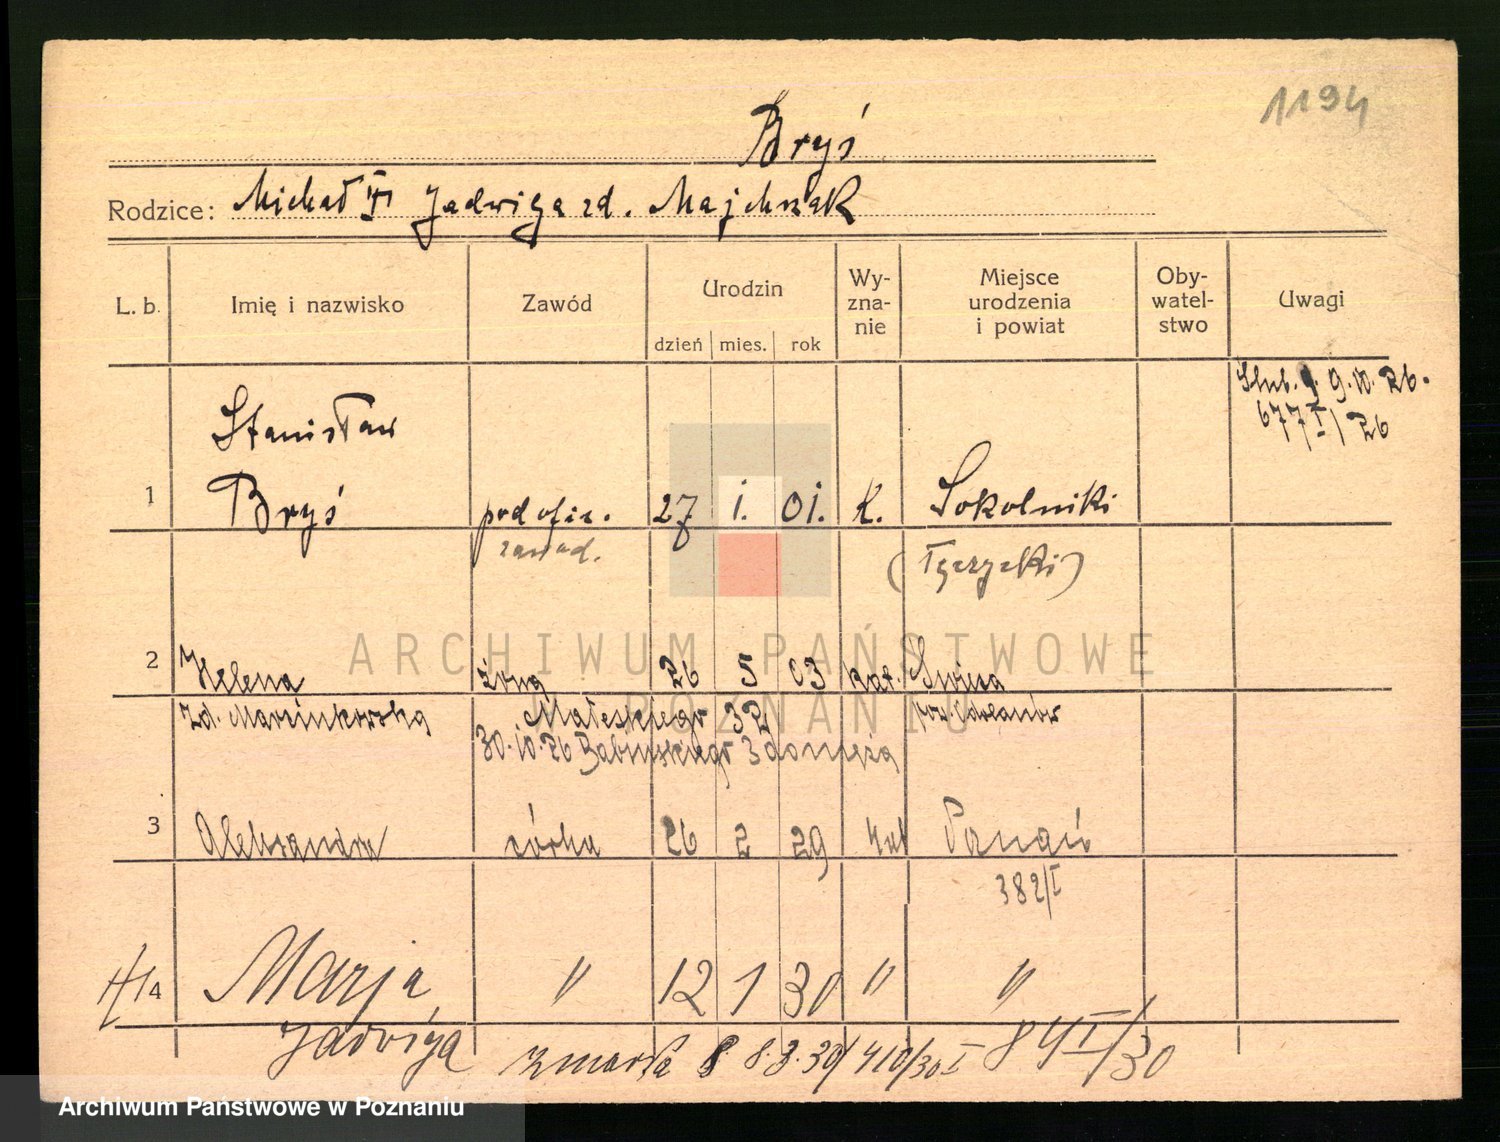 1194
Bryś
Rodzice: Michał Jadwiga zd. Majchrzak
L. b. Imię i nazwisko Zawód Urodzin dzień mies. rok Wy-zna-nie Miejsce urodzenia i powiat Oby-watel-stwo Uwagi
Ślub. 9.10.26.
677 I/26
Stanisław
1 Bryś podofic. 27 1. 01. k. Sokolniki
zawod.
2 Helena żona 26 5 03 kat.
zd. Marcinkowska Małeckiego 32
30.10.26 Babińskiego 3
3 Aleksandra córka 26 2 29 kat Poznań
382/I
4 Marja " 12 1 30 " "
Jadwiga 84 I/30
zmarła 8.3.30 410/30 I
ARCHIWUM PAŃSTWOWE
POZNANIU
Archiwum Państwowe w Poznaniu